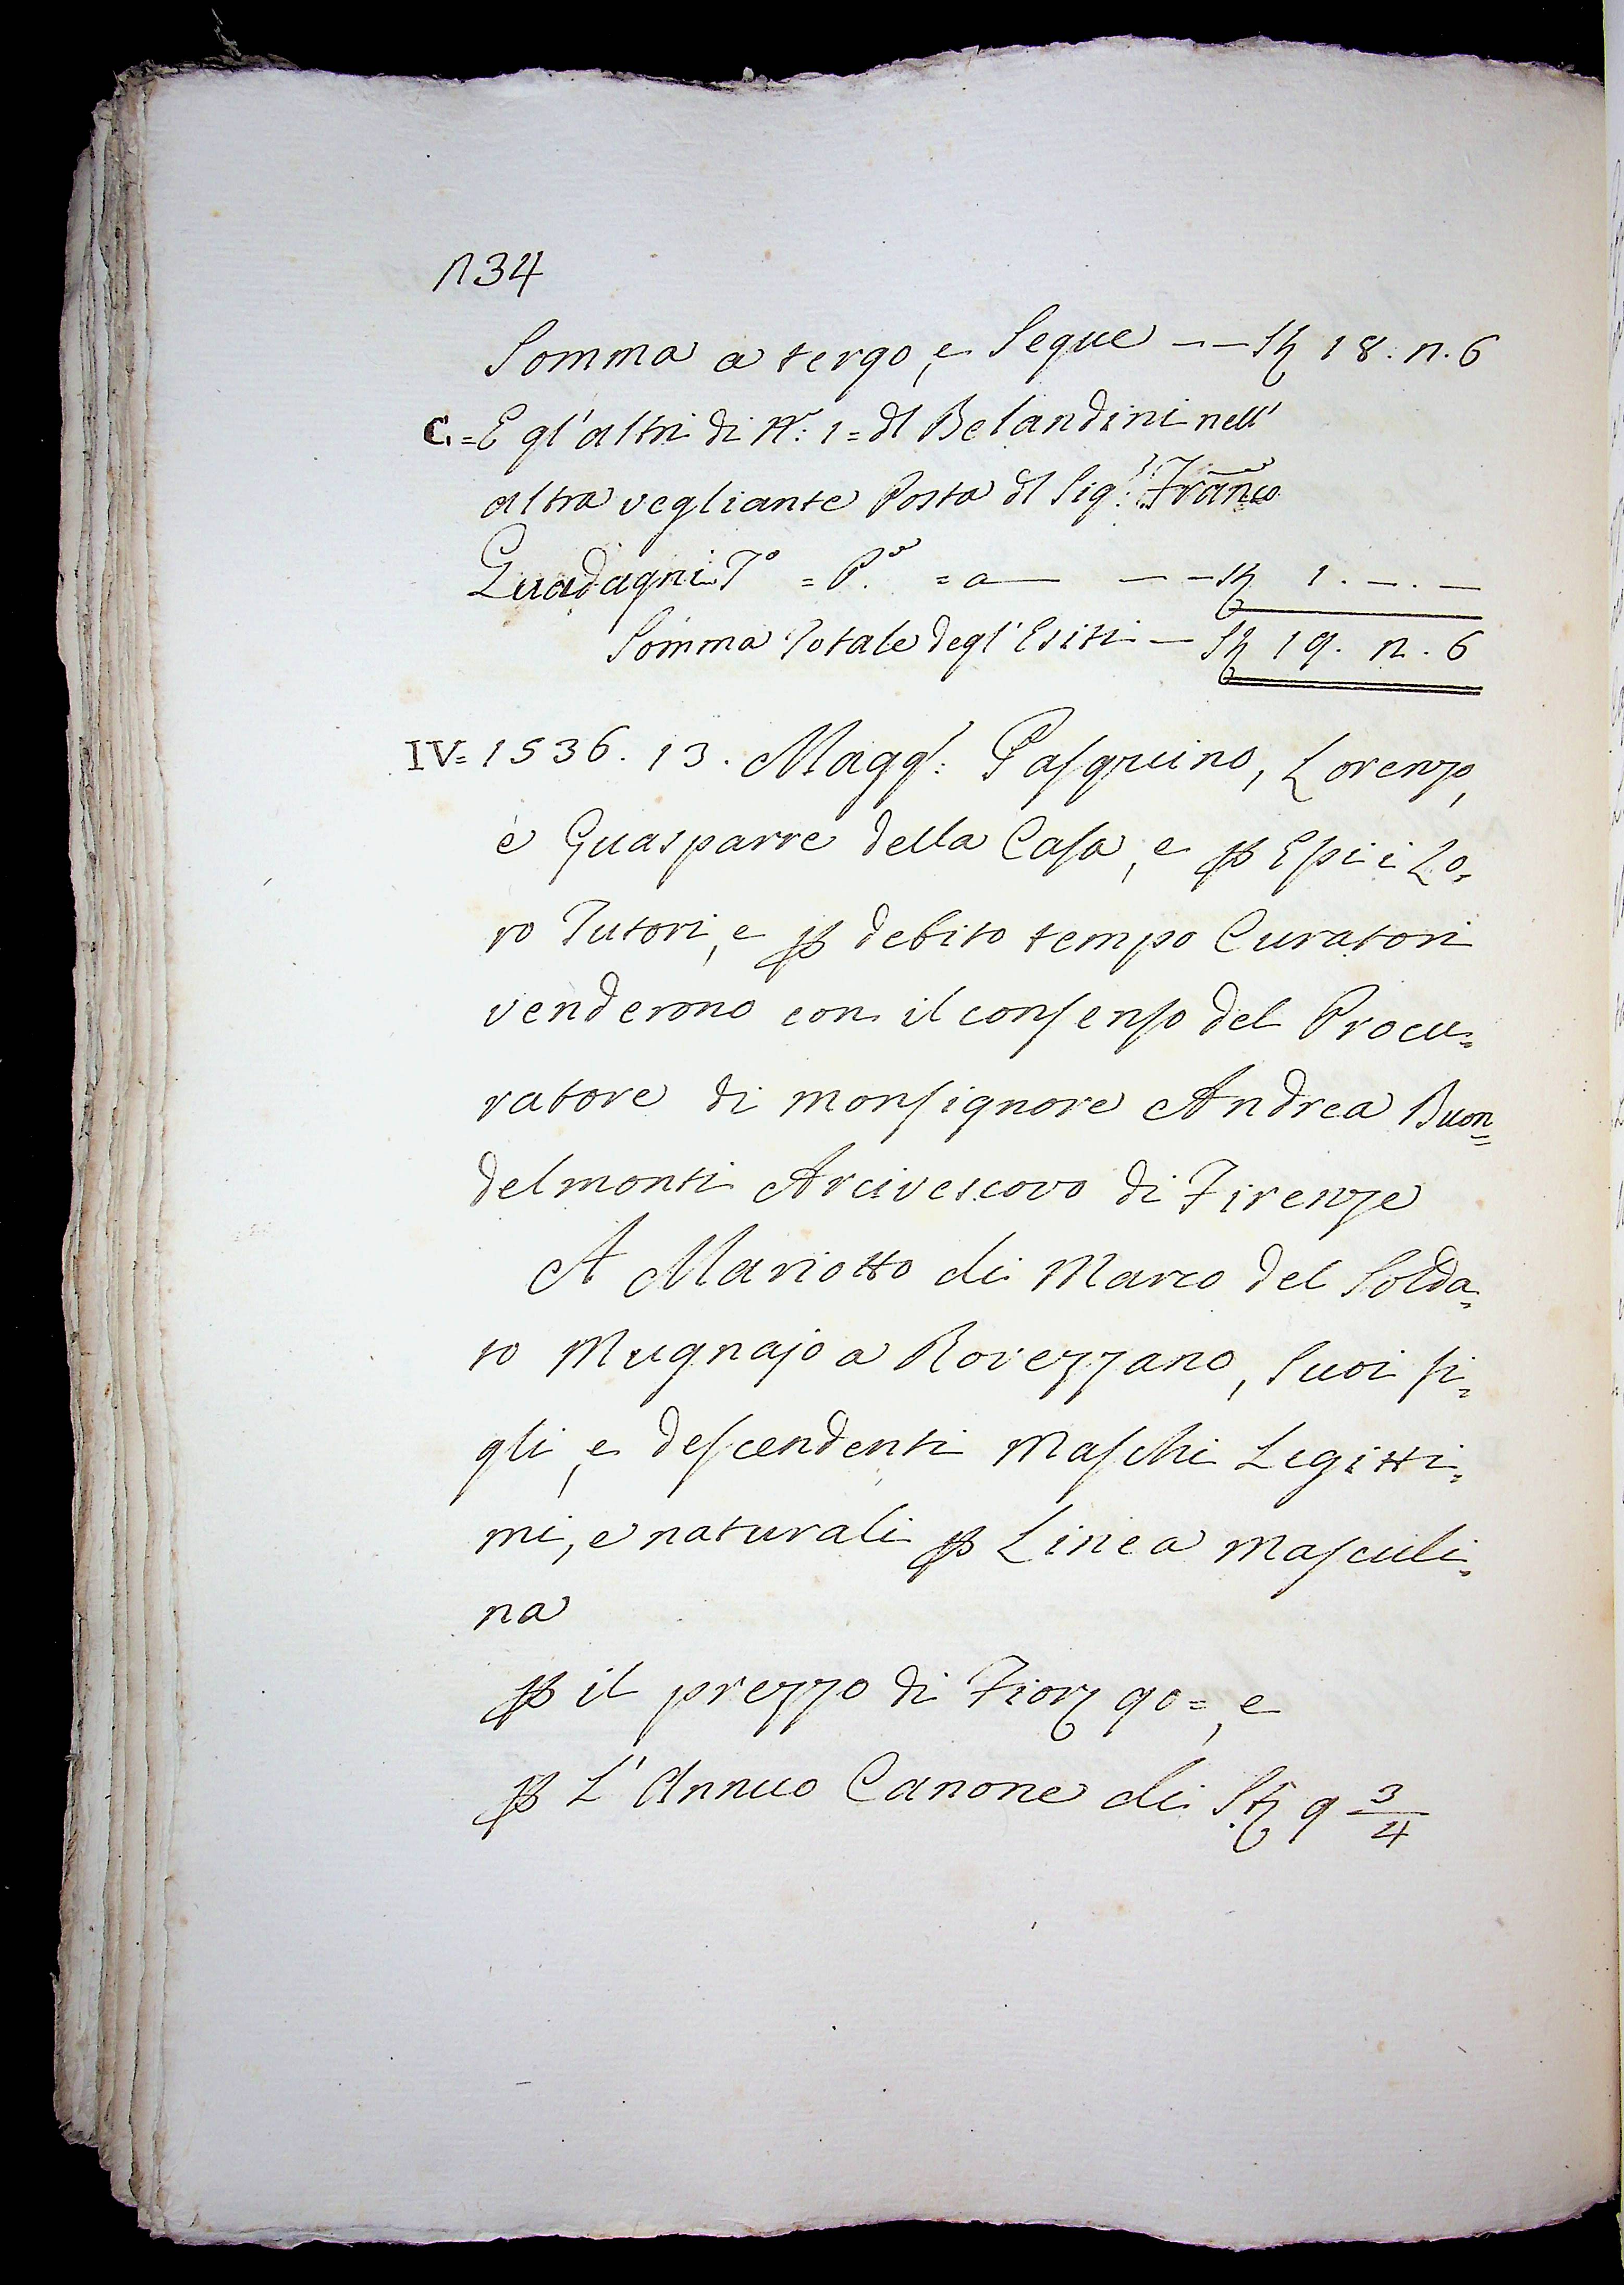 n 34
Somma a tergo, e Segue -- St 18. n. 6
C. = E gl'altri di N.o: 1 = dl Belandini nell'
altra vegliante Posta dl Sig.r: Franco
Guadagni T.o = P.a = a — — - St 1. —. —
Somma Totale degl'Esiti — St 19. n. 6
IV = 1536. 13. Magg: Pasquino, Lorenzo,
e Guasparre della Casa, e p Essi i Lo=
ro Tutori, e p debito tempo Curatori
venderono con il consenso del Procu=
ratore di monsignore Andrea Buon=
delmonti Arcivescovo di Firenze
A Mariotto di Marco del Solda=
to Mugnajo a Rovezzano, Suoi fi=
gli, e descendenti Maschi Legitti=
mi, e naturali p Linea Masculi=
na
p il prezzo di Fior 90 =, e
p L'Annuo Canone di St 9 3/4